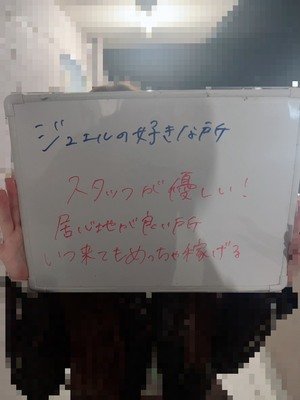 ジュエルの好きな所
スタッフが優しい!
居心地が良い所
いつ来てもめっちゃ稼げる